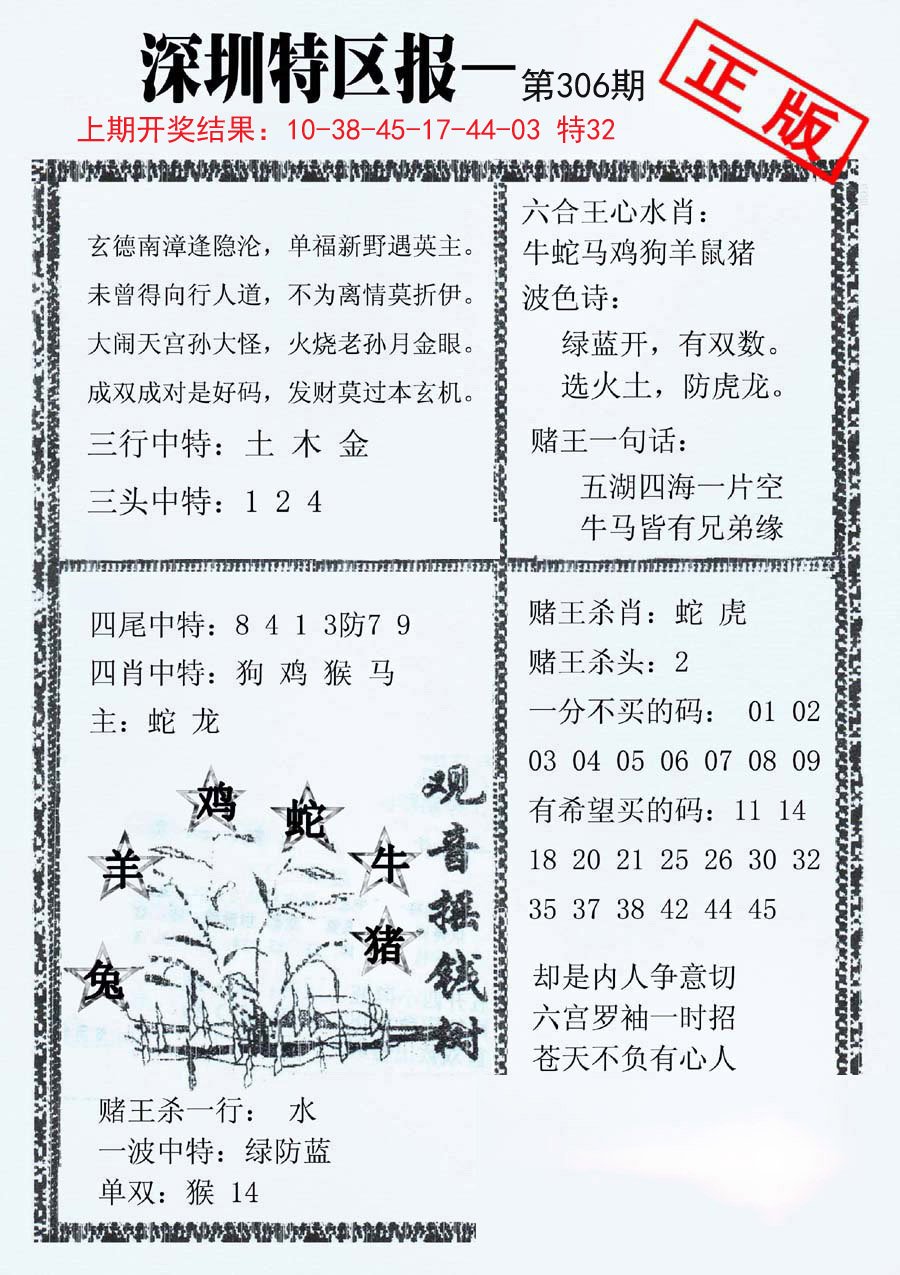 深圳特区报—第306期
正版
上期开奖结果：10-38-45-17-44-03 特32
玄德南漳逢隐沦，单福新野遇英主。
未曾得向行人道，不为离情莫折伊。
大闹天宫孙大怪，火烧老孙月金眼。
成双成对是好码，发财莫过本玄机。
三行中特：土 木 金
三头中特：1 2 4
六合王心水肖：
牛蛇马鸡狗羊鼠猪
波色诗：
绿蓝开，有双数。
选火土，防虎龙。
赌王一句话：
五湖四海一片空
牛马皆有兄弟缘
四尾中特：8 4 1 3防7 9
四肖中特：狗 鸡 猴 马
主：蛇 龙
鸡
蛇
羊
牛
猪
兔
观音摇钱树
赌王杀一行： 水
一波中特：绿防蓝
单双：猴 14
赌王杀肖：蛇 虎
赌王杀头：2
一分不买的码： 01 02
03 04 05 06 07 08 09
有希望买的码：11 14
18 20 21 25 26 30 32
35 37 38 42 44 45
却是内人争意切
六宫罗袖一时招
苍天不负有心人